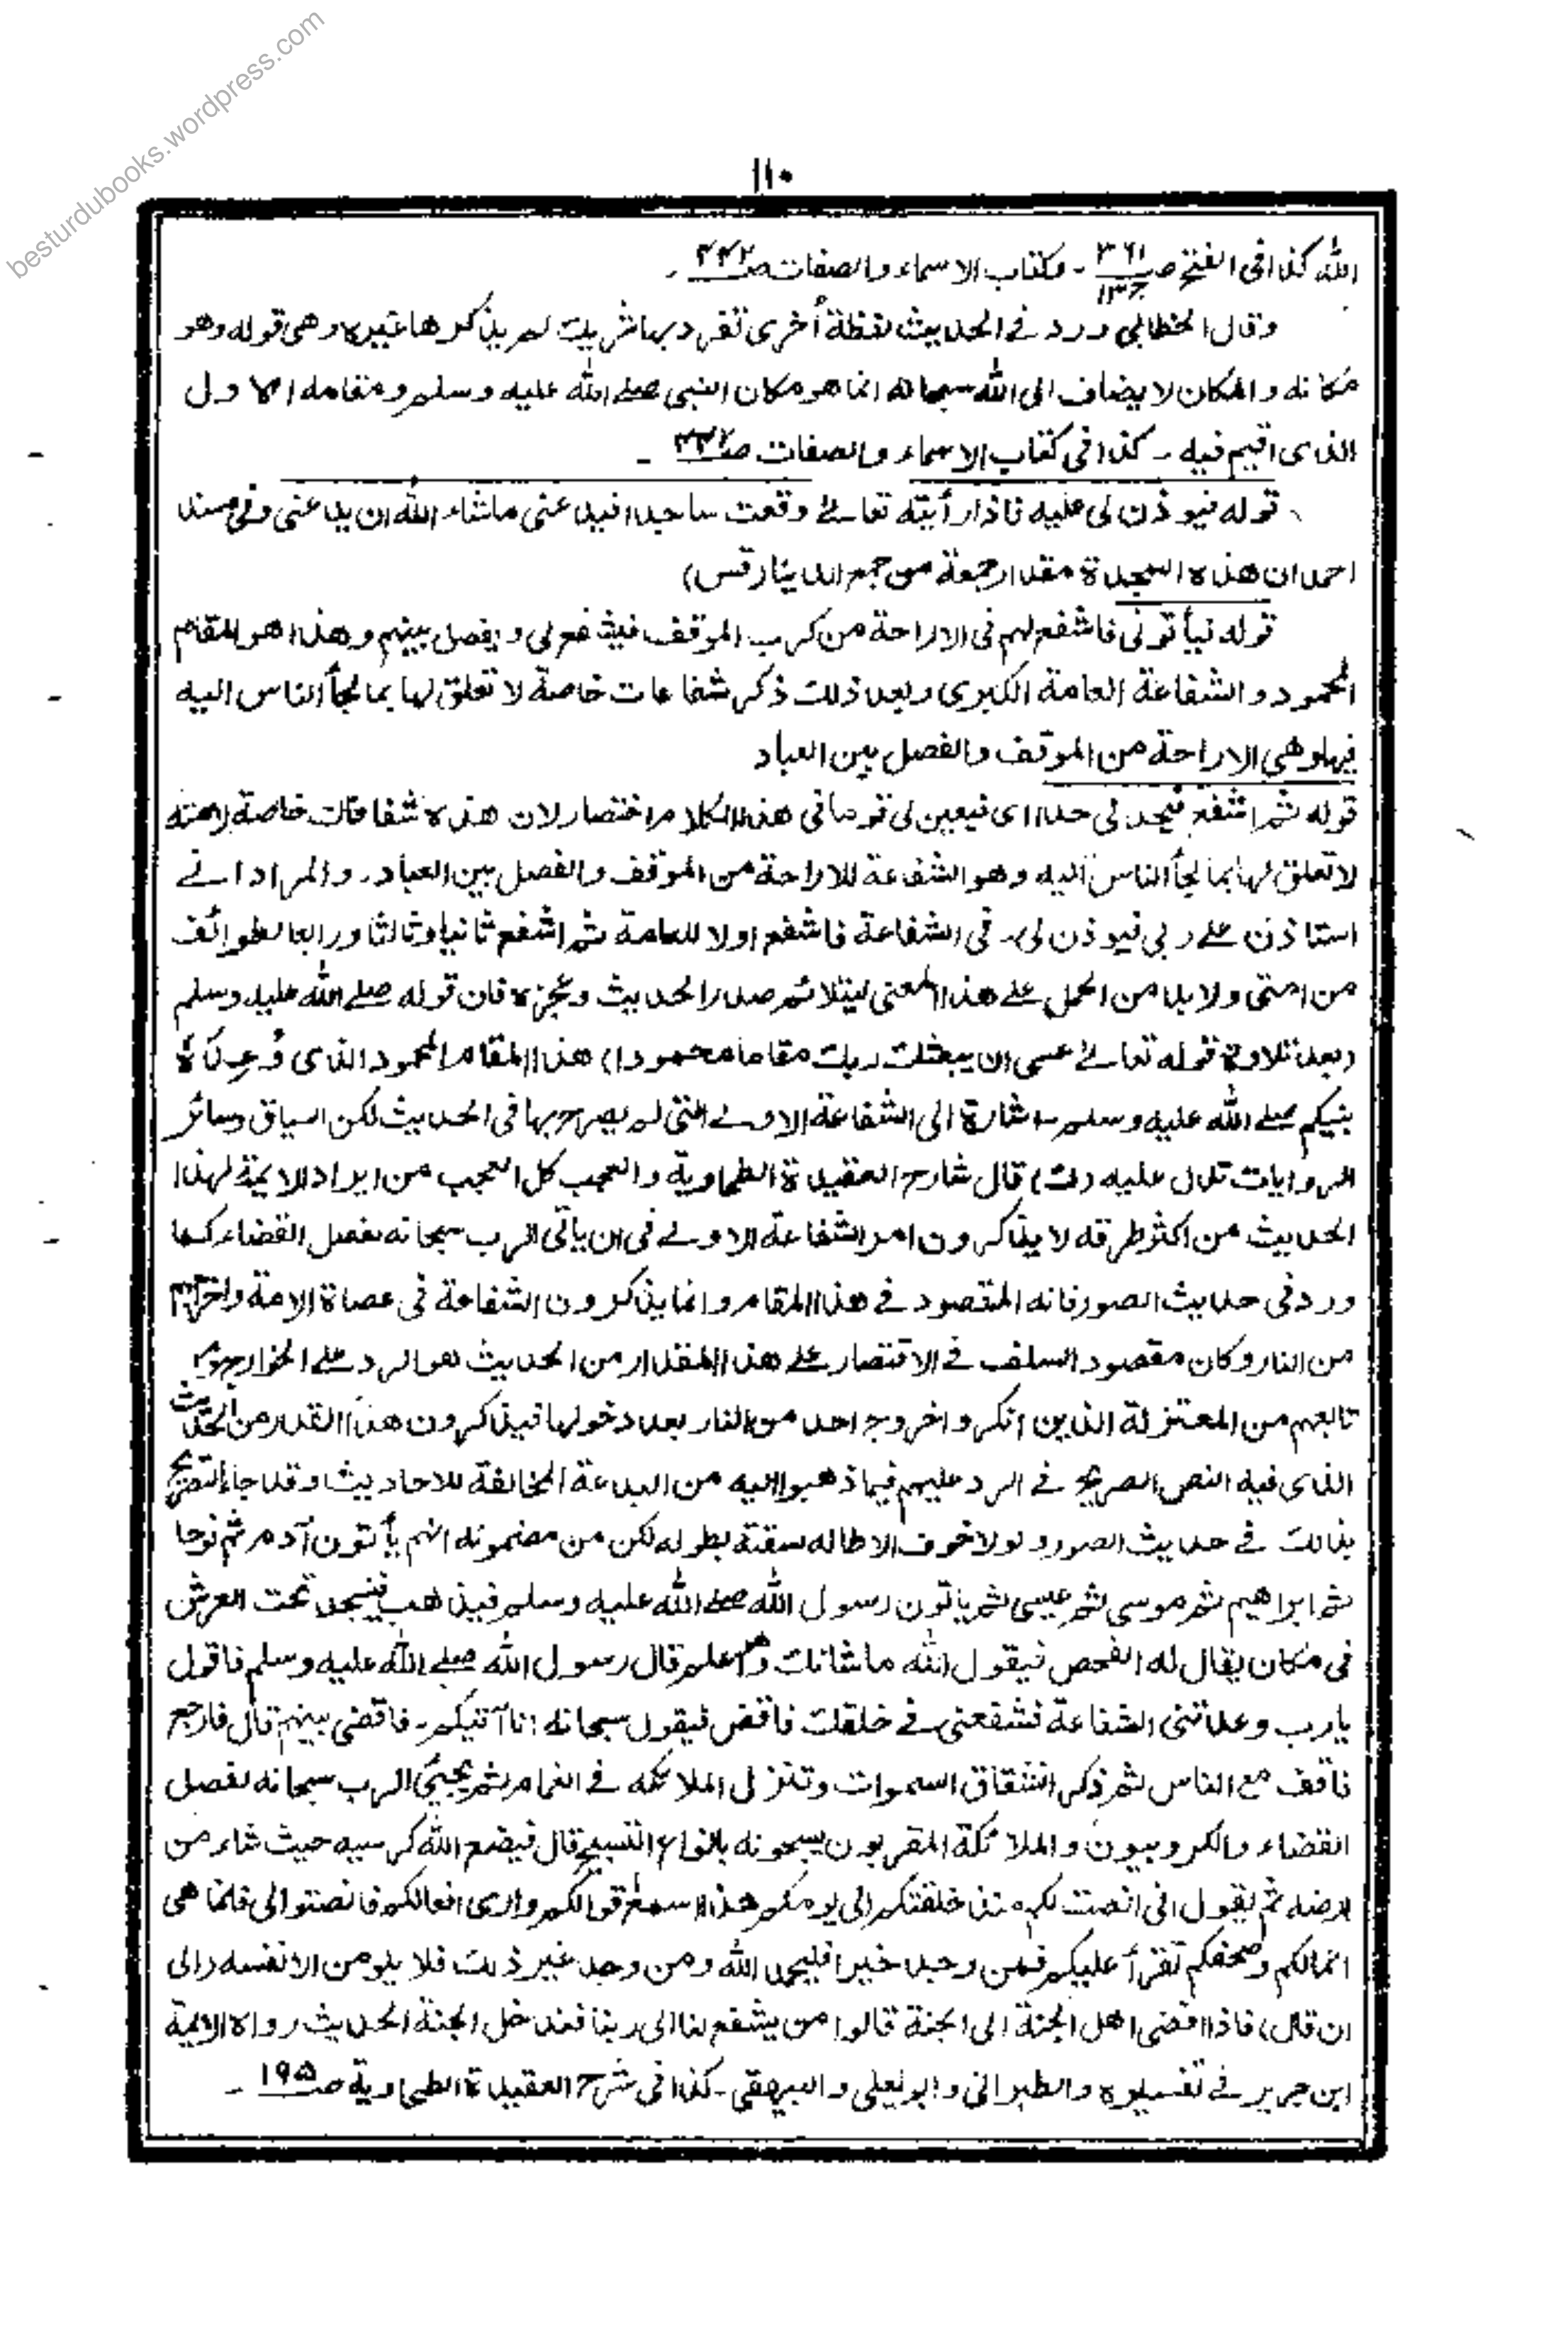 besturdubooks.wordpress.com
١١٠
الله كذا فى الفتح ص٣٦١ ج١٣ ـ وكتاب الاسماء والصفات ص٤٤٢ ـ
وقال الخطابى ورد فے الحديث لفظة أخرى تفرد بها شريك لم يذكرها غيره وهى قوله وهو
مكانه والمكان لا يضاف الى الله سبحانه انما هو مكان النبى صلے الله عليه وسلم ومقامه الاول
الذى اقيم فيه ـ كذا فى كتاب الاسماء والصفات ص٤٤٢ ـ
قوله فيوذن لى عليه فاذا رأيته تعالےٰ وقعت ساجدا فيدعنى ماشاء الله ان يدعنى وفى مسند
احمد ان هذه السجدة مقدار جمعة من جمع الدنيا (قس)
قوله فيأتونى فاشفع لهم فى الاراحة من كرب الموقف فيشفع لى ويفصل بينهم وهذا هو المقام
المحمود والشفاعة العامة الكبرى وبعد ذلك ذكر شفاعات خاصة لا تعلق لها بما لجأ الناس اليه
فيها وهى الاراحة من الموقف والفصل بين العباد
قوله ثم اشفع فيحد لى حدا اى فيعين لى قوما فى هذا الكلام اختصار لان هذه شفاعات خاصة لامته
لا تعلق لها بما لجأ الناس اليه وهو الشفاعة للاراحة من الموقف والفصل بين العباد ـ والمراد انے
استاذن علے ربى فيوذن لى ـ فى الشفاعة فاشفع اولا للعامة ثم اشفع ثانيا وثالثا ورابعا لطوائف
من امتى ولا بد من الحمل علے هذا المعنى ليتلائم صدر الحديث وعجزه فان قوله صلے الله عليه وسلم
(بعد تلاوة قوله تعالےٰ عسى ان يبعثك ربك مقاما محمودا) هذا المقام المحمود الذى وُعِدَهٗ
نبيكم صلے الله عليه وسلم اشارة الى الشفاعة الاولے التى لم يصرح بها فى الحديث لكن السياق وسائر
الروايات تدل عليه (ك) قال شارح العقيدة الطحاوية والعجب كل العجب من ايراد الايمة لهذا
الحديث من اكثر طرقه لا يذكرون امر الشفاعة الاولے فى ان يأتى الرب سبحانه لفصل القضاء كما
ورد فى حديث الصور فانه المقصود فے هذا المقام وانما يذكرون الشفاعة فى عصاة الامة واخراجهم
من النار وكان مقصود السلف فے الاقتصار علے هذا المقدار من الحديث هو الرد علے الخوارج ومن
تابعهم من المعتزلة الذين انكروا خروج احد من النار بعد دخولها فيذكرون هذا القدر من الحديث
الذى فيه النص الصريح فے الرد عليهم فيما ذهبوا اليه من البدعة المخالفة للاحاديث وقد جاء التصريح
بذلك فے حديث الصور ولولا خوف الاطاله لسقته بطوله لكن من مضمونه انهم يأتون آدم ثم نوحا
ثم ابراهيم ثم موسى ثم عيسى ثم ياتون رسول الله صلے الله عليه وسلم فيذهب فيسجد تحت العرش
فى مكان يقال له الفحص فيقول الله ما شانك وهو اعلم قال رسول الله صلے الله عليه وسلم فاقول
يارب وعدتنى الشفاعة فشفعنى فے خلقك فاقض فيقول سبحانه انا آتيكم ـ فاقضى بينهم قال فارجع
فاقف مع الناس ثم ذكر انشقاق السموات وتنزل الملائكه فے الغمام ثم يجيئ الرب سبحانه لفصل
القضاء والكروبيون والملائكة المقربون يسبحونه بانواع التسبيح قال فيضع الله كرسيه حيث شاء من
ارضه ثم يقول انى انصت لكم منذ خلقتكم الى يومكم هذا اسمع اقوالكم وارى افعالكم فانصتوا لى فانما هى
اعمالكم وصحفكم تقرأ عليكم فمن وجد خيرا فليحمد الله ومن وجد غير ذلك فلا يلومن الا نفسه (الى
ان قال) فاذا افضى اهل الجنة الى الجنة قالوا من يشفع لنا الى ربنا فندخل الجنة الحديث رواه الايمة
ابن جرير فے تفسيره والطبرانى وابو يعلى والبيهقى ـ كذا فى شرح العقيدة الطحاوية ص١٩٥ ـ